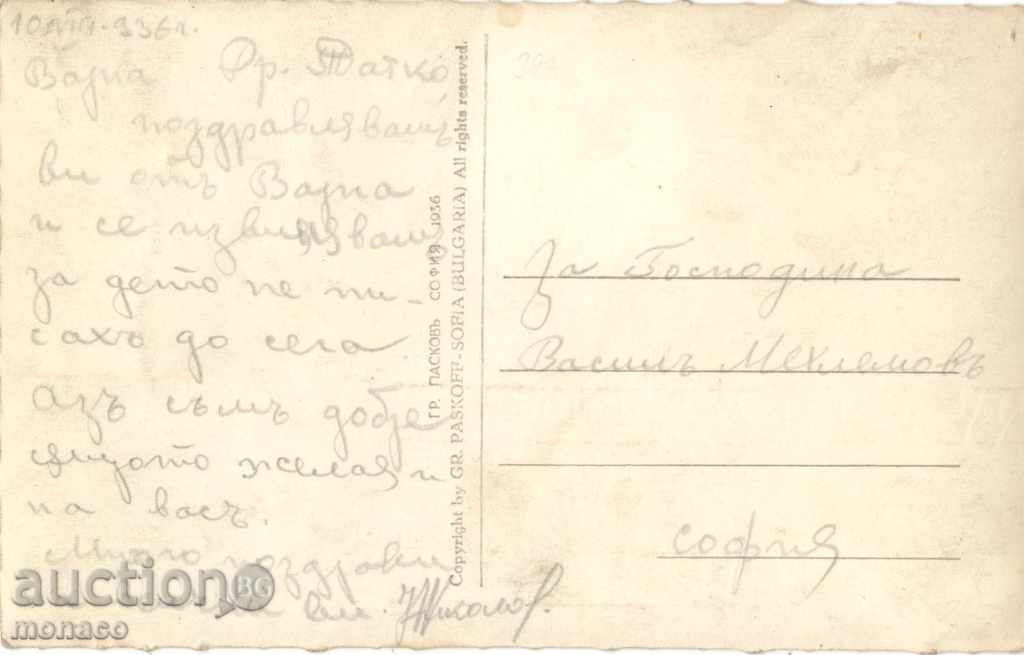 Варна Др. Татко
поздравлявамъ
ви отъ Варна
и се извинявамъ
за дето не пи-
сахъ до сега.
Азъ съмъ добре
същото желая и
на васъ.
Много поздрави
ГР. ПАСКОВЪ СОФИЯ 1936
Copyright by GR. PASKOFF-SOFIA (BULGARIA) All rights reserved.
За Господина
Василъ Мехлемовъ
София
auction BG
monaco